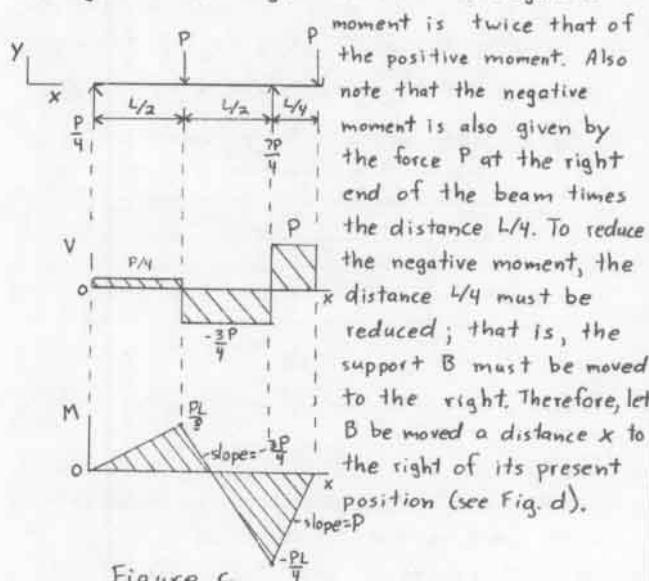 moment is twice that of
the positive moment. Also
note that the negative
moment is also given by
the force P at the right
end of the beam times
the distance L/4. To reduce
the negative moment, the
distance L/4 must be
reduced; that is, the
support B must be moved
to the right. Therefore, let
B be moved a distance x to
the right of its present
position (see Fig. d).
P P
y
x L/2 L/2 L/4
P/4 7P/4
V P/4 P
0 x
-3P/4
M PL/8
slope=-3P/4
0 x
slope=P
-PL/4
Figure c